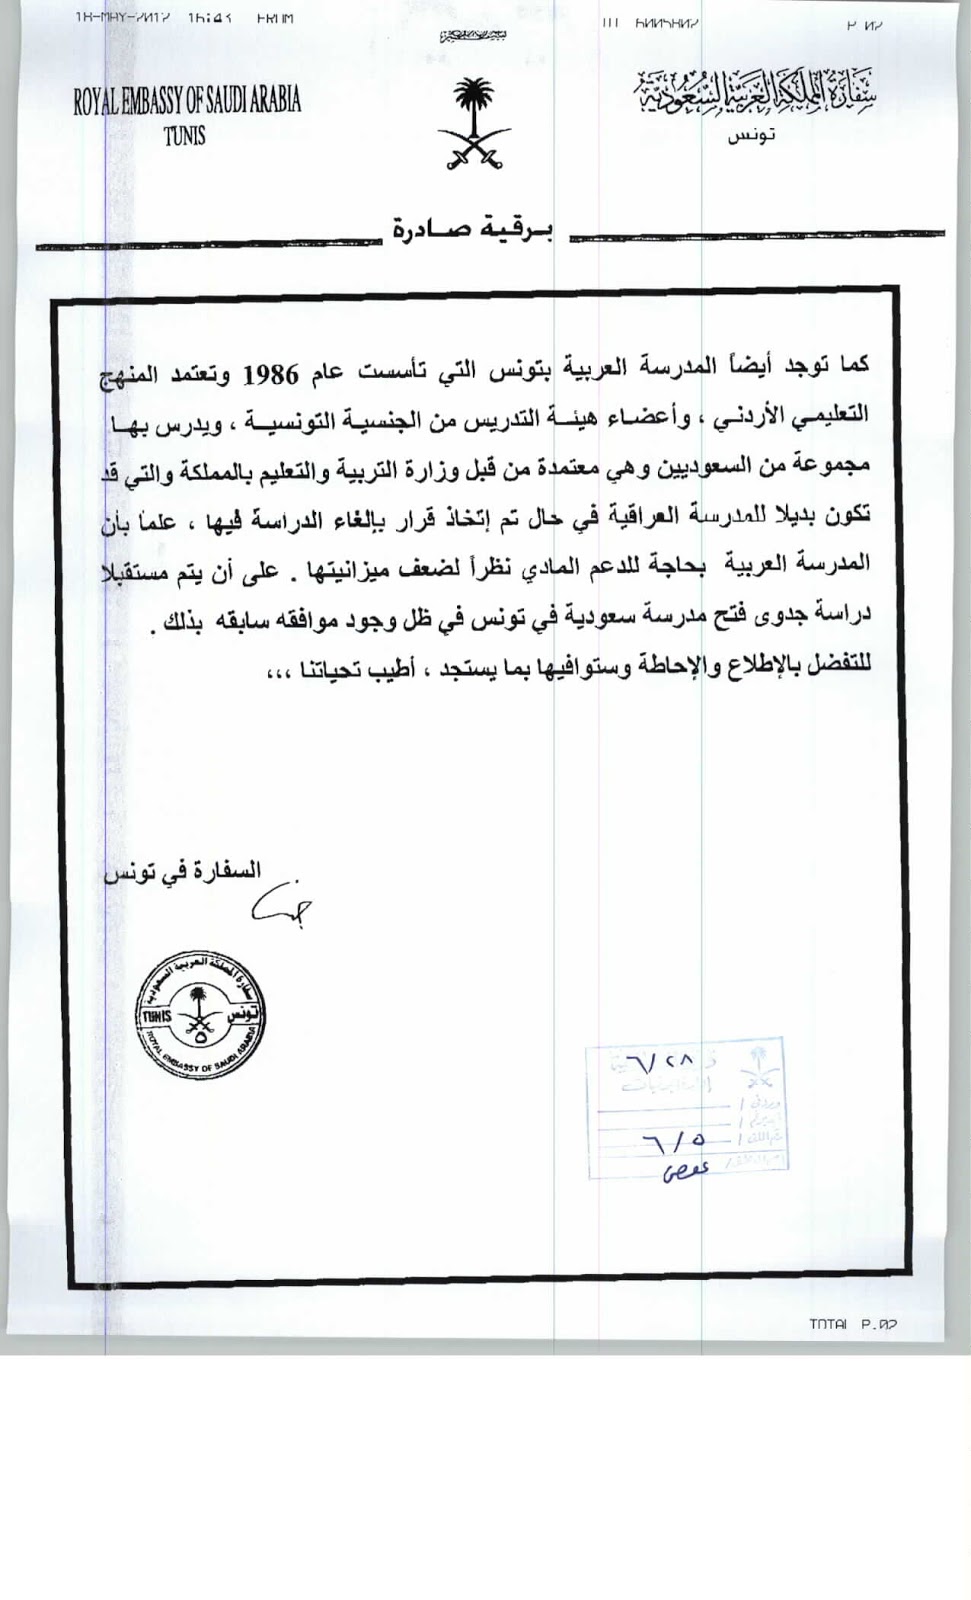 18-MAY-2012 16:43 FROM
P.02
ROYAL EMBASSY OF SAUDI ARABIA
TUNIS
سفارة المملكة العربية السعودية
تونس
برقية صادرة
كما توجد أيضاً المدرسة العربية بتونس التي تأسست عام 1986 وتعتمد المنهج
التعليمي الأردني ، وأعضاء هيئة التدريس من الجنسية التونسية ، ويدرس بها
مجموعة من السعوديين وهي معتمدة من قبل وزارة التربية والتعليم بالمملكة والتي قد
تكون بديلا للمدرسة العراقية في حال تم إتخاذ قرار بإلغاء الدراسة فيها ، علماً بأن
المدرسة العربية بحاجة للدعم المادي نظراً لضعف ميزانيتها . على أن يتم مستقبلا
دراسة جدوى فتح مدرسة سعودية في تونس في ظل وجود موافقه سابقه بذلك .
للتفضل بالإطلاع والإحاطة وستوافيها بما يستجد ، أطيب تحياتنا ،،،
السفارة في تونس
سفارة المملكة العربية السعودية
TUNIS تونس
ROYAL EMBASSY OF SAUDI ARABIA
٦/٢٨
٦/٥
TOTAL P.02